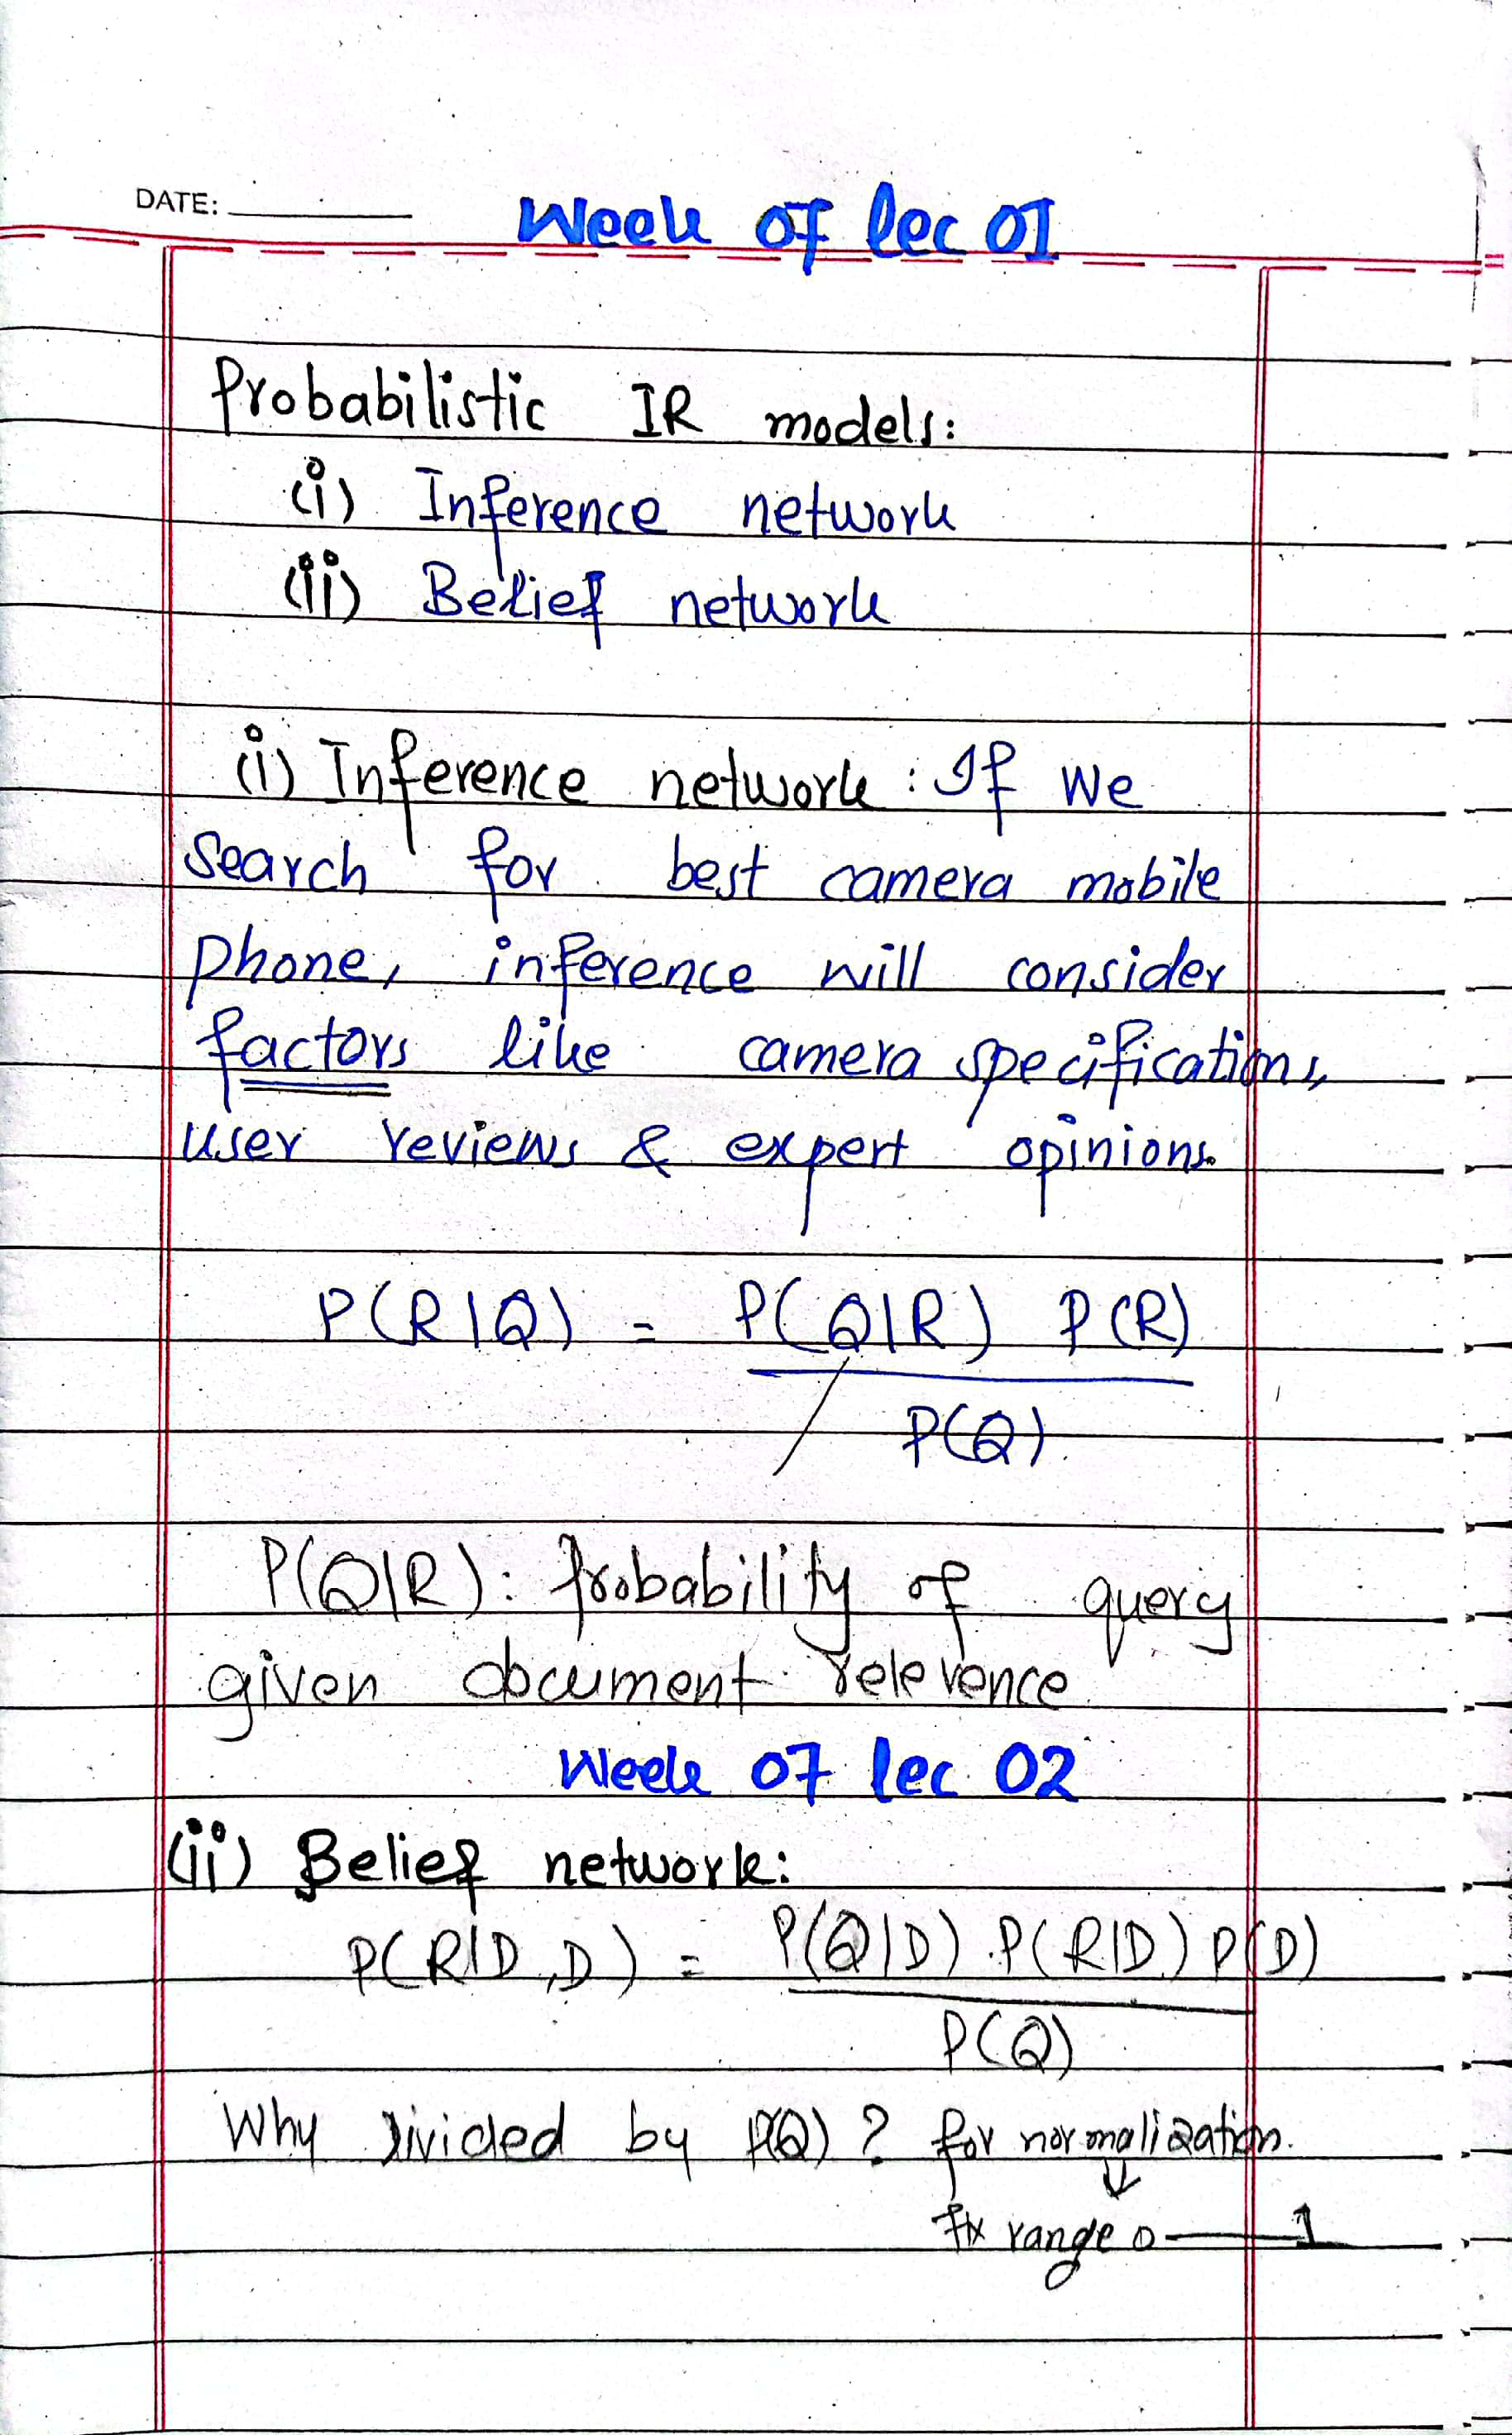 DATE:
Week 07 lec 01
Probabilistic IR models:
(i) Inference network
(ii) Belief network
(i) Inference network : If we
search for best camera mobile
phone, inference will consider
factors like camera specifications,
user reviews & expert opinions.
P(R|Q) = P(Q|R) P(R)
P(Q)
P(Q|R): Probability of query
given document relevence
Week 07 lec 02
(ii) Belief network:
P(R|D,D) = P(Q|D).P(R|D) P(D)
P(Q)
Why divided by P(Q)? for normalization.
↓
fix range 0 — 1